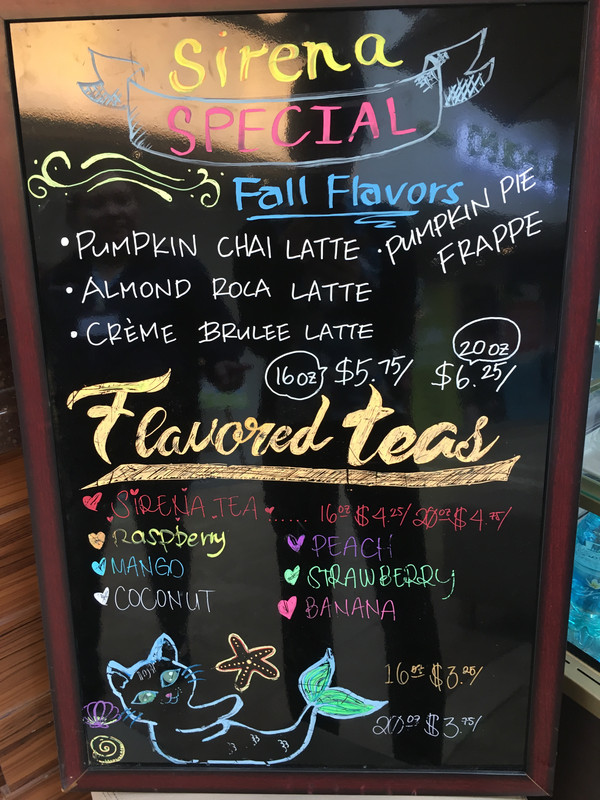 Sirena
SPECIAL
Fall Flavors
• PUMPKIN CHAI LATTE
• PUMPKIN PIE
FRAPPE
• ALMOND ROCA LATTE
• CRÈME BRULEE LATTE
16 oz $5.75/
20 oz
$6.25/
Flavored teas
SIRENA TEA ...... 16oz $4.25/ 20oz $4.75/
Raspberry
PEACH
MANGO
STRAWBERRY
COCONUT
BANANA
16oz $3.25/
20oz $3.75/